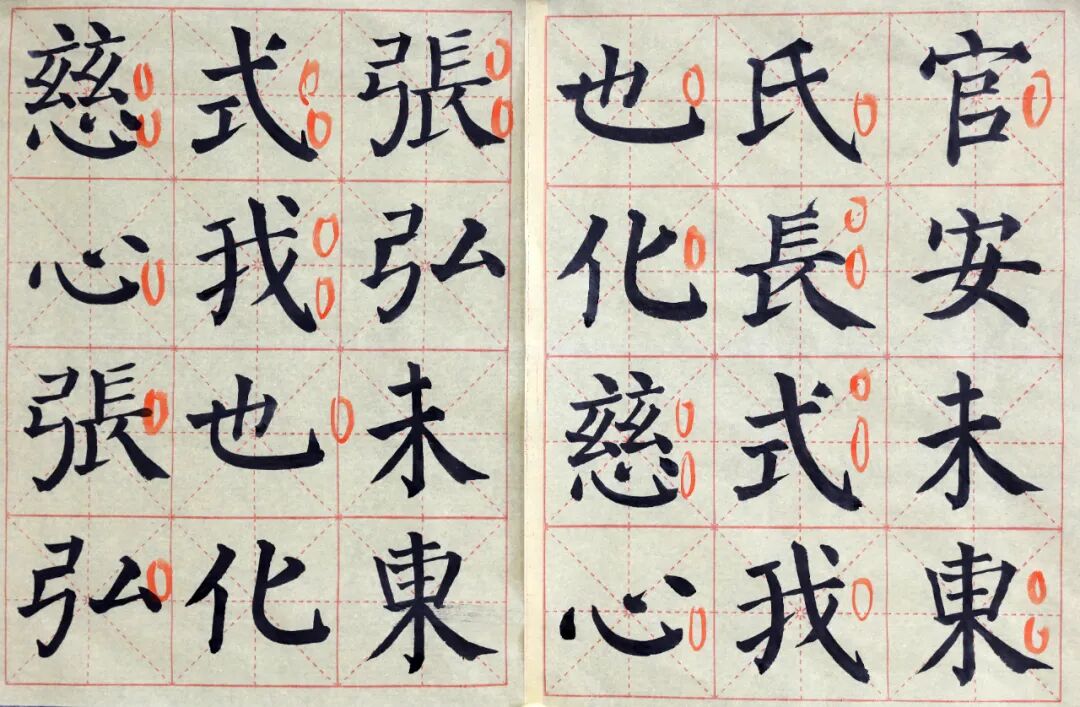 官安未東
氏長式我
也化慈心
張弘未東
式我也化
慈心張弘